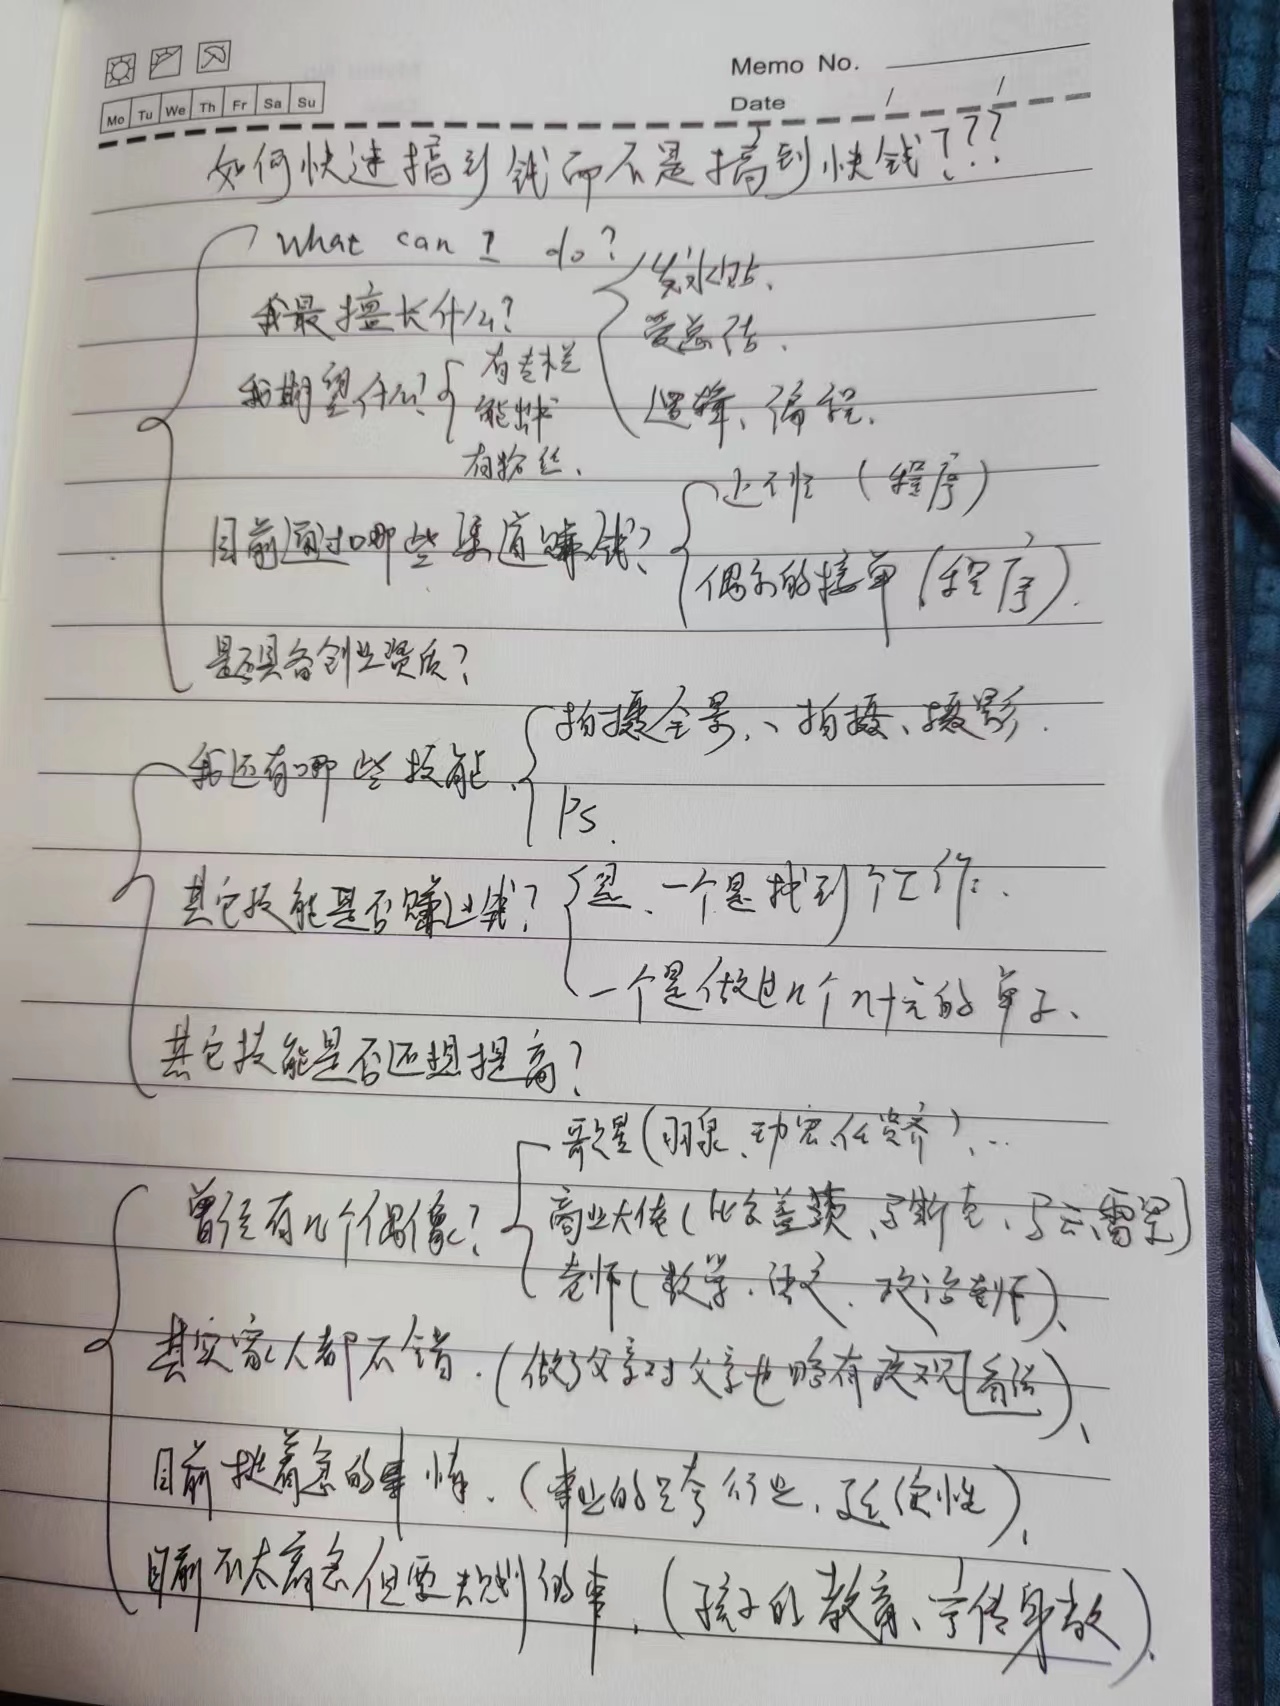 Memo No.
Mo Tu We Th Fr Sa Su
Date / /
如何快速搞到钱而不是搞到快钱???
What can I do?
我最擅长什么?
发水贴、
爱总结、
逻辑、编程、
我期望什么?
有专栏
能出书
有粉丝、
目前通过哪些渠道赚钱?
上班 (程序)
偶尔的接单 (程序)、
是否具备创业资质?
我还有哪些技能、
拍摄全景、、拍摄、摄影、
PS、
其它技能是否赚过钱?
是、一个是找到个工作、
一个是做过几个几十元的单子、
其它技能是否还想提高?
曾经有几个偶像?
歌星(羽泉、动力火车、任贤齐)、…
商业大佬(比尔盖茨、马斯克、马云、雷军)
老师(数学、语文、政治老师)、
其实家人都不错、(做了父亲对父亲也略有 看法)、
目前挺着急的事情、(事业的 跨行业、延续性)、
目前不太着急但要去规划的事、(孩子的教育、言传身教)、